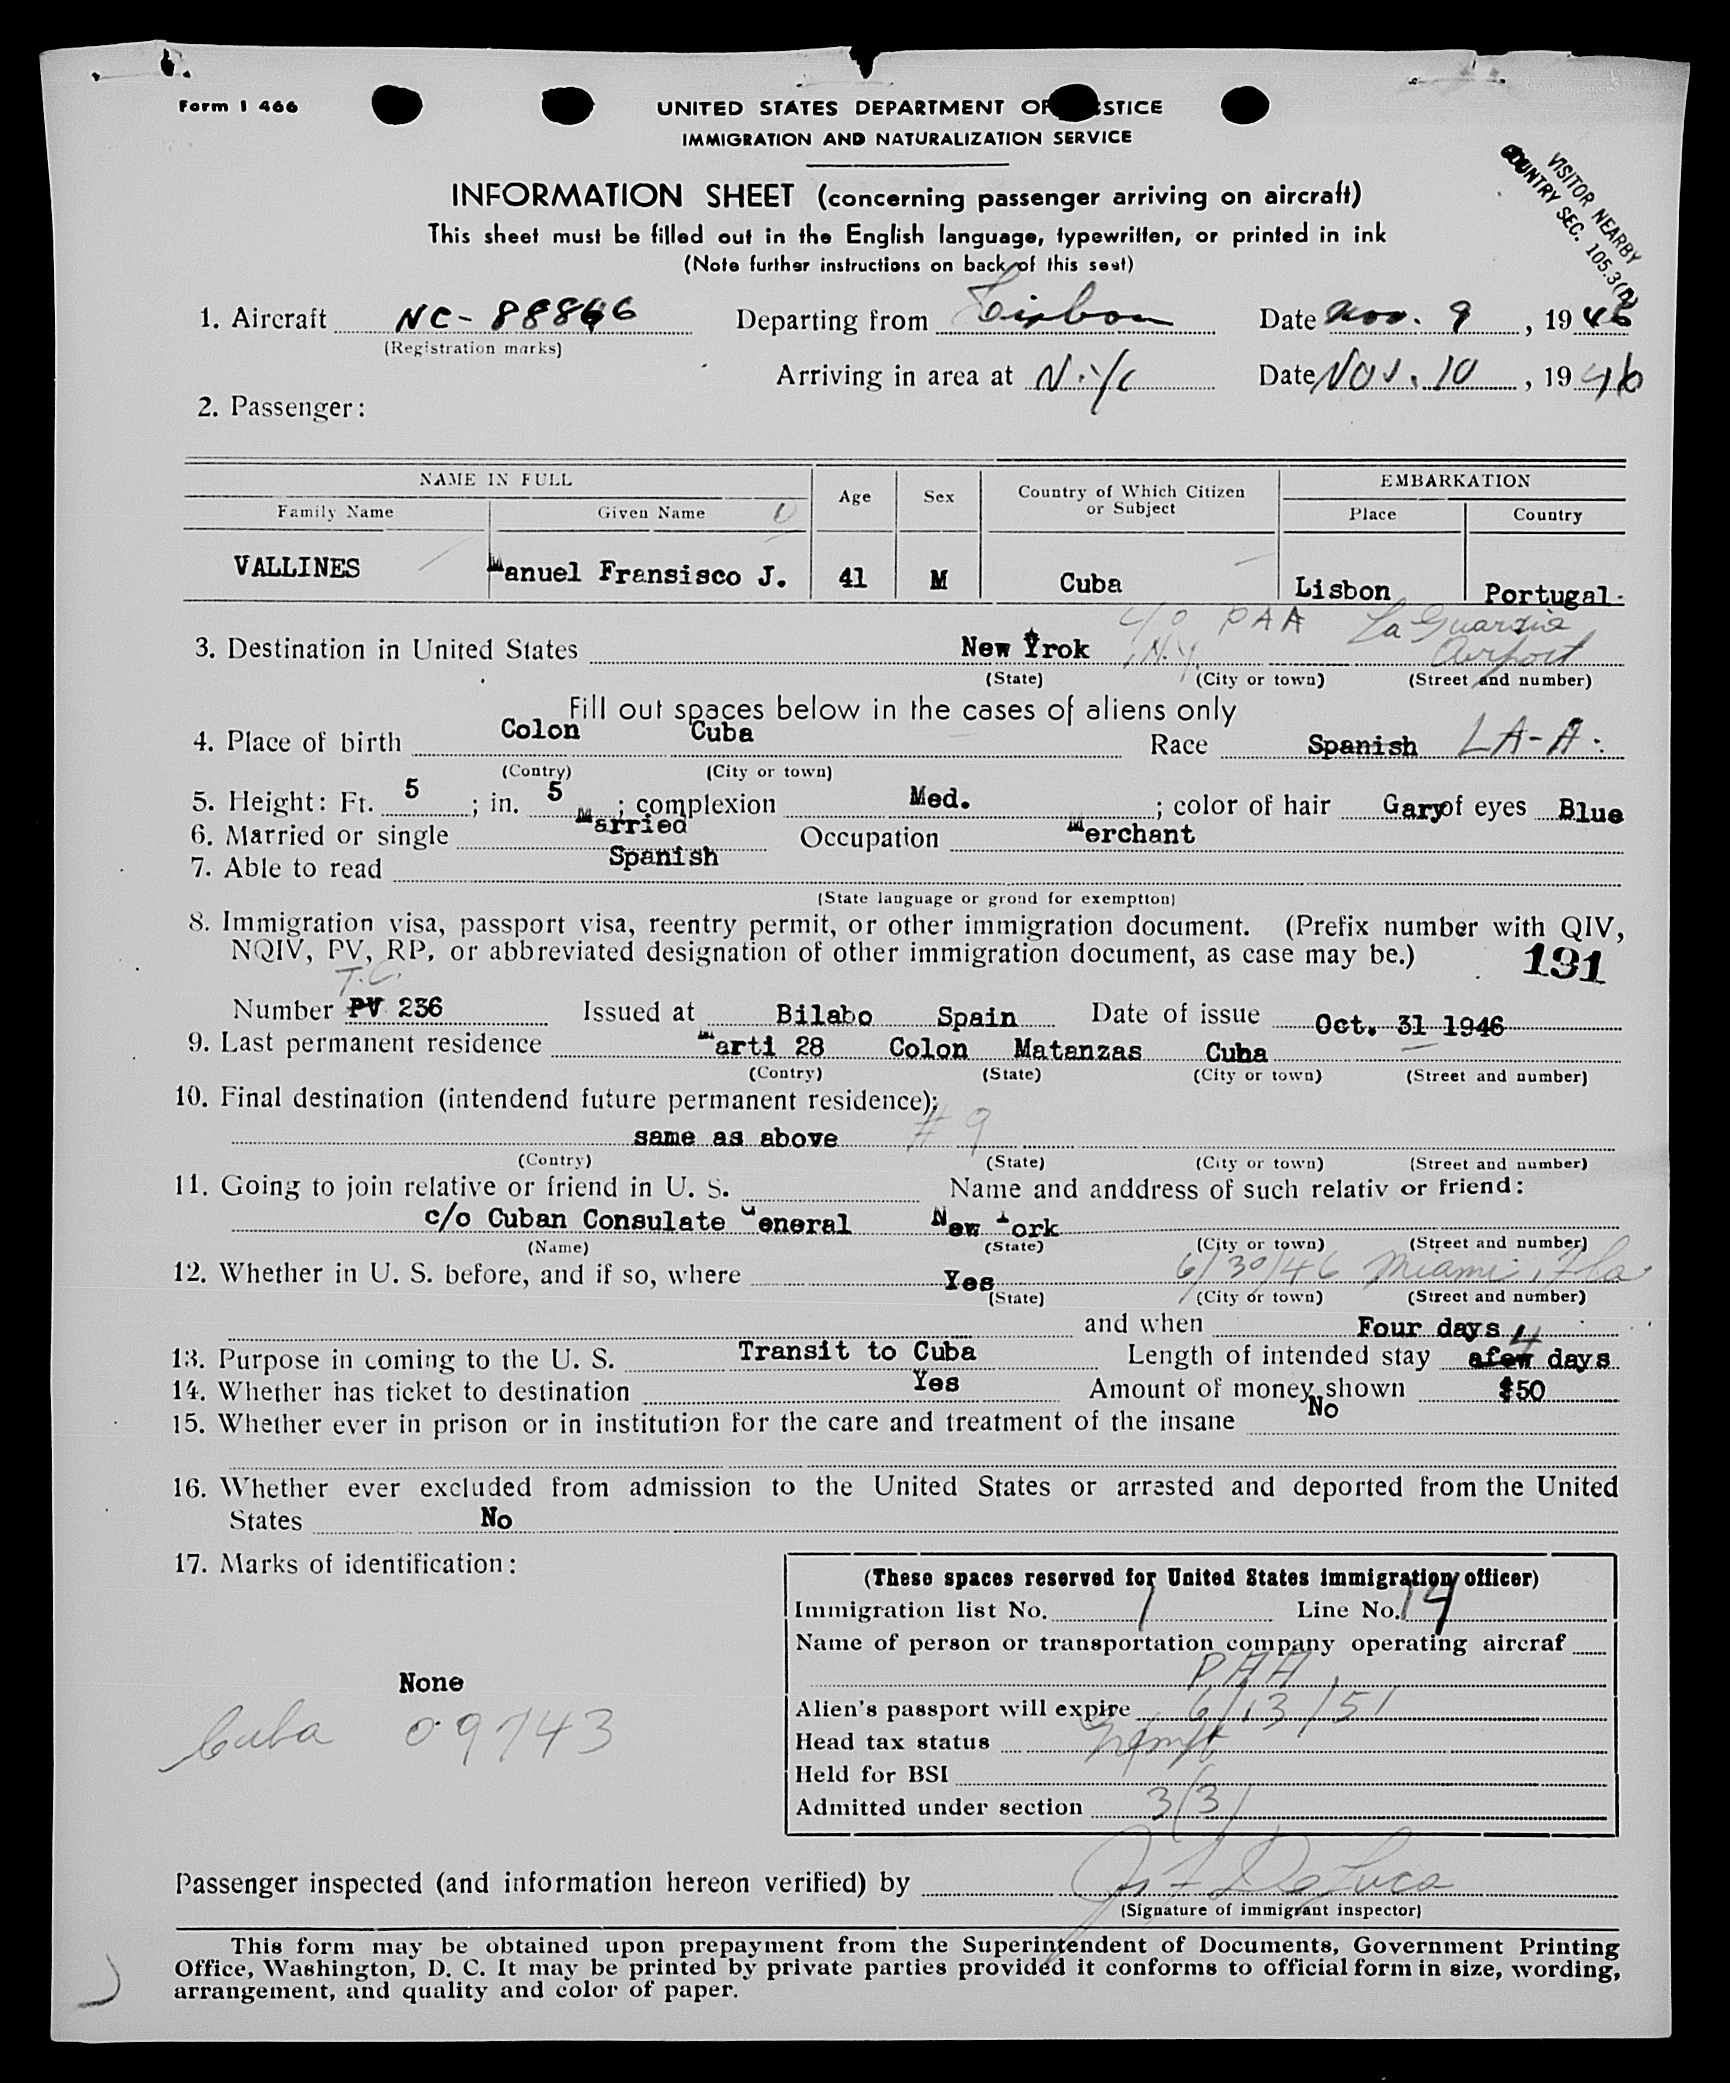 Form I 466
UNITED STATES DEPARTMENT OF STICE
IMMIGRATION AND NATURALIZATION SERVICE
VISITOR NEARBY
COUNTRY SEC. 105.3(B)
INFORMATION SHEET (concerning passenger arriving on aircraft)
This sheet must be filled out in the English language, typewritten, or printed in ink
(Note further instructions on back of this seet)
1. Aircraft NC- 88846 Departing from Lisbon Date Nov. 9, 1946
(Registration marks)
Arriving in area at N.Y.C Date Nov. 10, 1946
2. Passenger:
NAME IN FULL Age Sex Country of Which Citizen or Subject EMBARKATION
Family Name Given Name Place Country
VALLINES Manuel Fransisco J. 41 M Cuba Lisbon Portugal.
c/o PAA La Guardia
3. Destination in United States New Yrok N.Y. Airport
(State) (City or town) (Street and number)
Fill out spaces below in the cases of aliens only
4. Place of birth Colon Cuba Race Spanish LA-A.
(Contry) (City or town)
5. Height: Ft. 5; in. 5; complexion Med.; color of hair Gary of eyes Blue
6. Married or single Married Occupation Merchant
7. Able to read Spanish
(State language or grond for exemptton)
8. Immigration visa, passport visa, reentry permit, or other immigration document. (Prefix number with QIV,
NQIV, PV, RP, or abbreviated designation of other immigration document, as case may be.) 191
T.C.
Number PV 236 Issued at Bilabo Spain Date of issue Oct. 31 1946
9. Last permanent residence Marti 28 Colon Matanzas Cuba
(Contry) (State) (City or town) (Street and number)
10. Final destination (intendend future permanent residence):
same as above # 9
(Contry) (State) (City or town) (Street and number)
11. Going to join relative or friend in U. S. Name and anddress of such relativ or friend:
c/o Cuban Consulate General New York
(Name) (State) (City or town) (Street and number)
12. Whether in U. S. before, and if so, where Yes 6/30/46 Miami, Fla
(State) (City or town) (Street and number)
and when Four days
13. Purpose in coming to the U. S. Transit to Cuba Length of intended stay afew 4 days
14. Whether has ticket to destination Yes Amount of money shown $50
15. Whether ever in prison or in institution for the care and treatment of the insane No
16. Whether ever excluded from admission to the United States or arrested and deported from the United
States No
17. Marks of identification:
None
Cuba 09743
(These spaces reserved for United States immigration officer)
Immigration list No. 1 Line No. 14
Name of person or transportation company operating aircraf
PAA
Alien's passport will expire 6/13/51
Head tax status Exempt
Held for BSI
Admitted under section 3(3)
Passenger inspected (and information hereon verified) by J. F. DeLuca
(Signature of immigrant inspector)
This form may be obtained upon prepayment from the Superintendent of Documents, Government Printing
Office, Washington, D. C. It may be printed by private parties provided it conforms to official form in size, wording,
arrangement, and quality and color of paper.